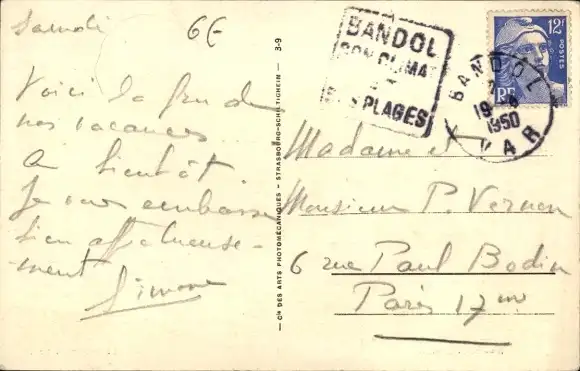 Samedi
6€
Voici la fin de
nos vacances.
A bientôt
Je vous embrasse
bien affectueuse-
ment
Simone
3-9
— Cie DES ARTS PHOTOMÉCANIQUES - STRASBOURG-SCHILTIGHEIM —
BANDOL
SON CLIMAT
SES PLAGES
12F
POSTES
RF
BANDOL
19
1950
VAR
Madame et
Monsieur P. Vernon
6 rue Paul Bodin
Paris 17me